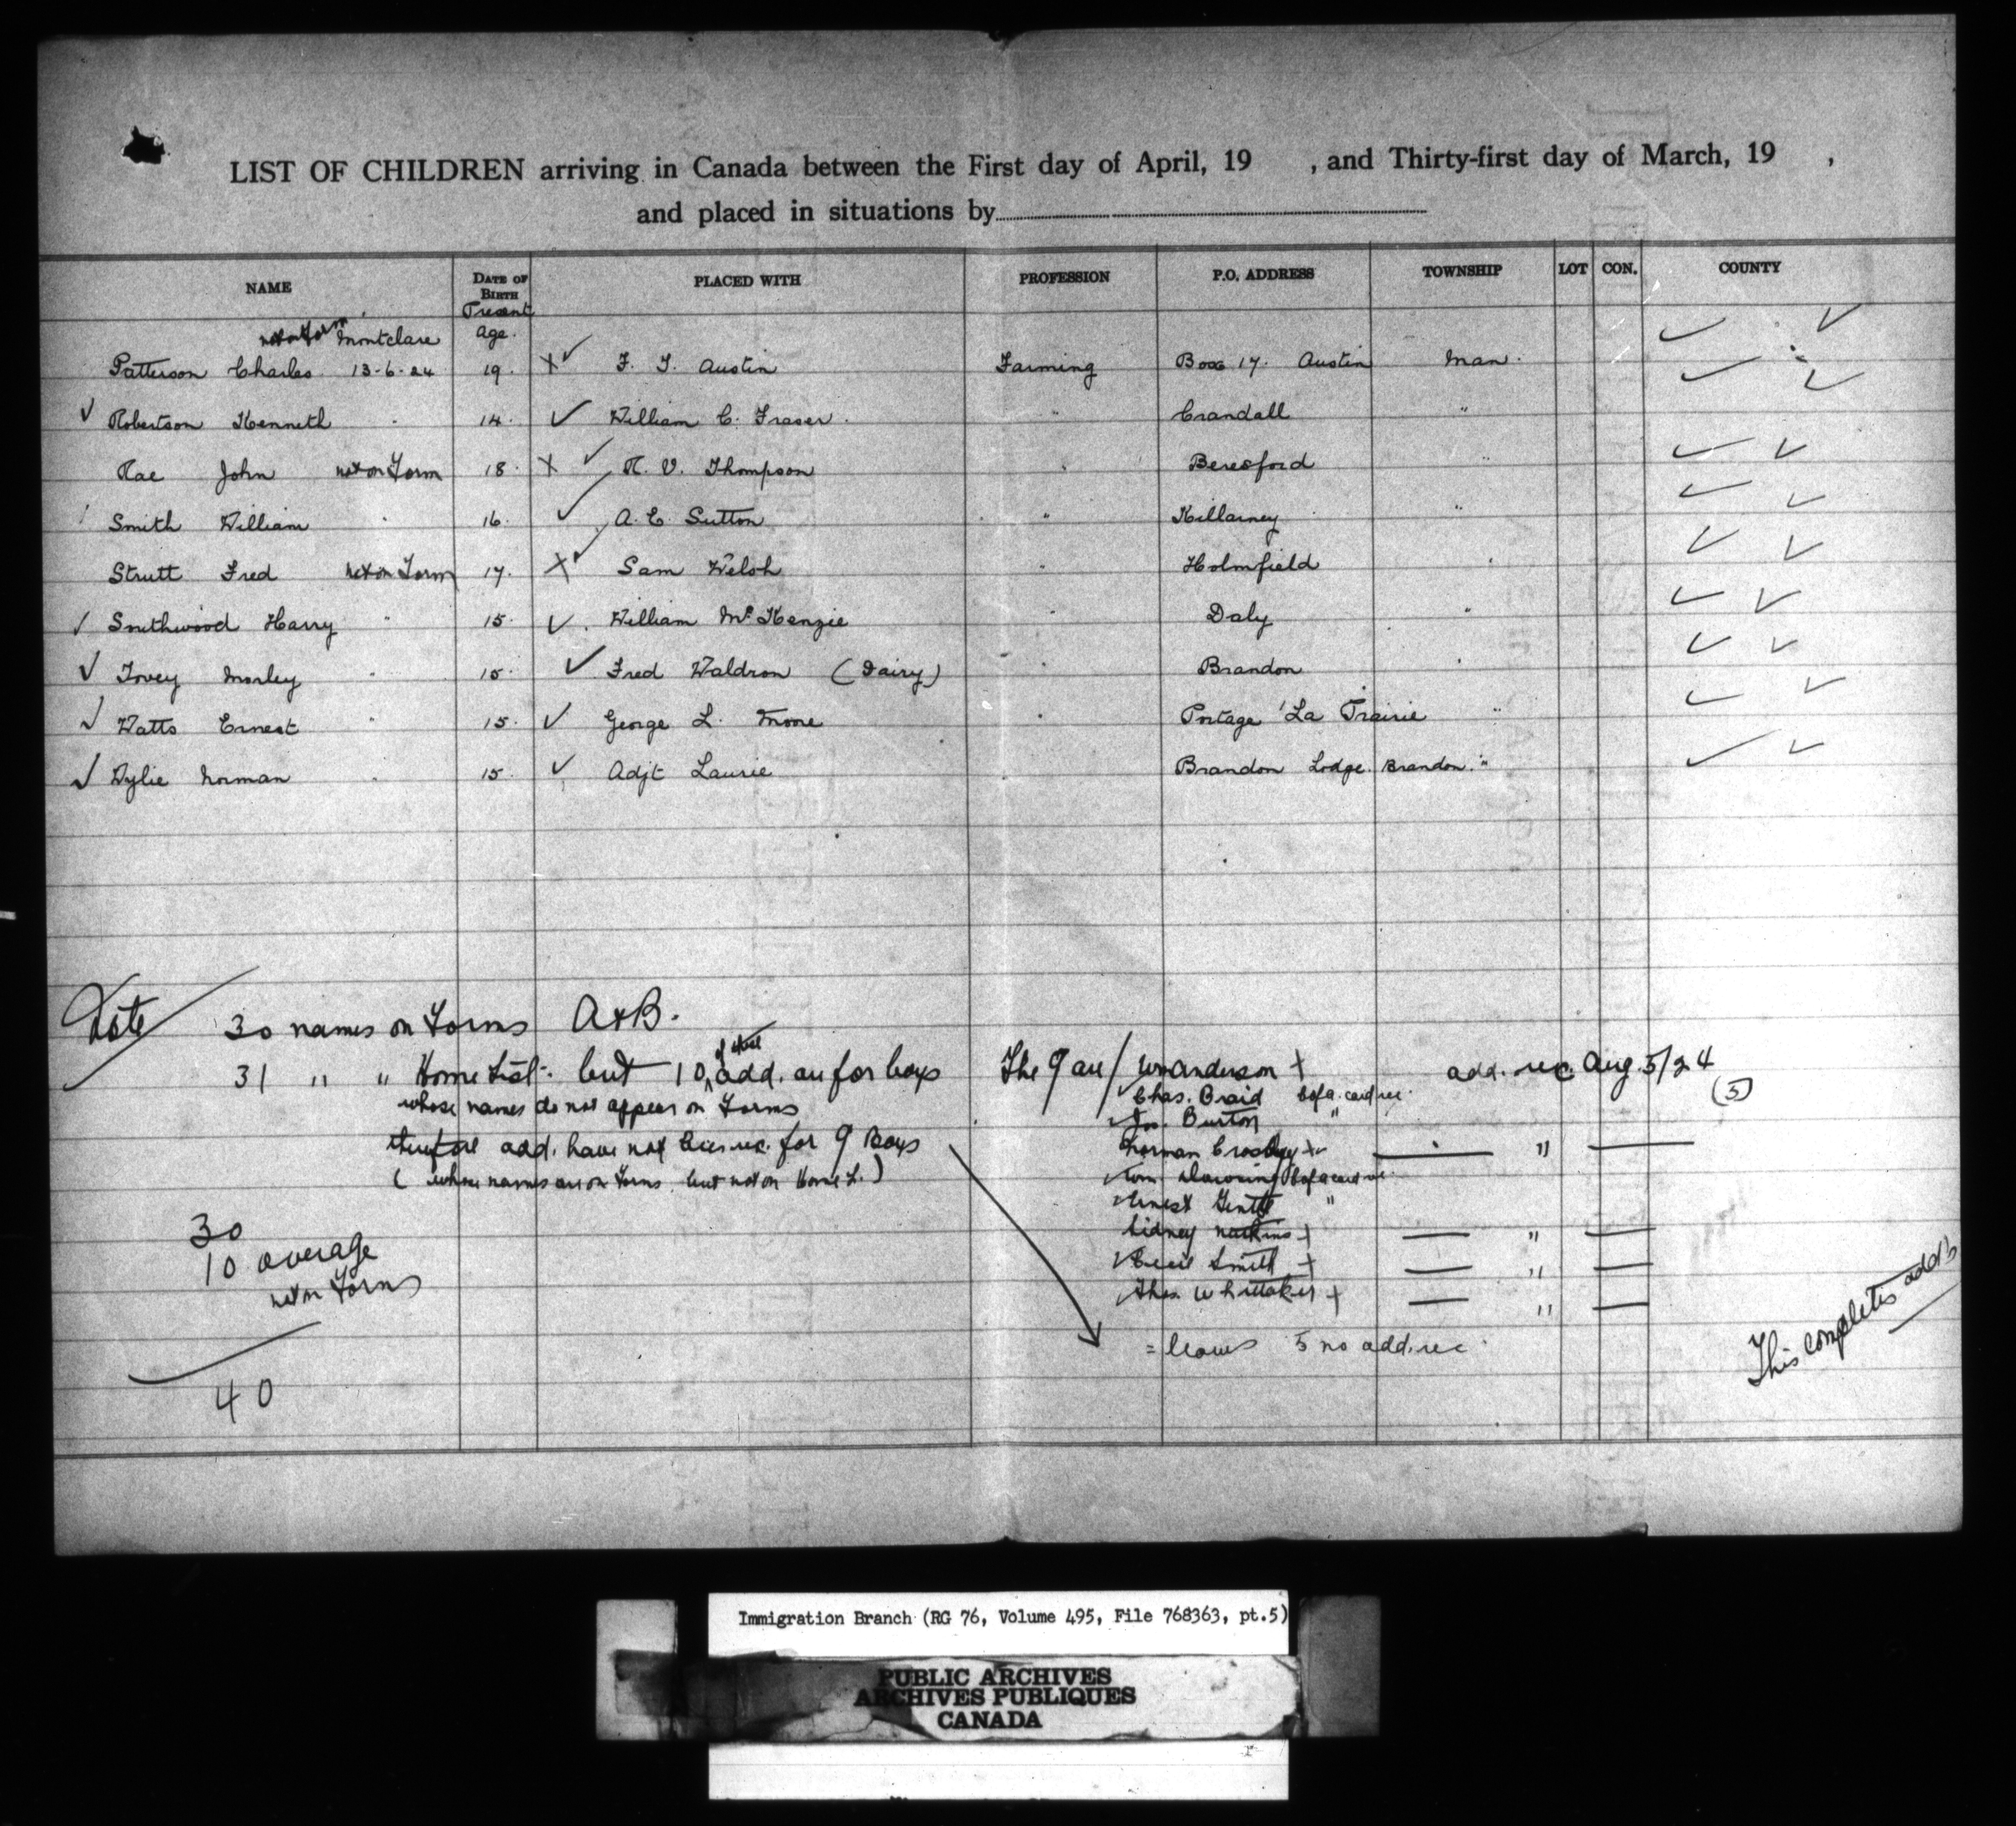 LIST OF CHILDREN arriving in Canada between the First day of April, 19 , and Thirty-first day of March, 19 ,
and placed in situations by
NAME DATE OF BIRTH PLACED WITH PROFESSION P.O. ADDRESS TOWNSHIP LOT CON. COUNTY
Present
not on Form Montclare Age.
Patterson Charles 13-6-24 19. X✓ F. J. Austin Farming Box 17. Austin Man.
✓ Robertson Kenneth 14. ✓ William C. Fraser. " Crandall "
Rae John not on Form 18. X ✓ R. V. Thompson " Beresford "
Smith William " 16. ✓ A. E. Sutton " Killarney "
Strutt Fred not on Form 17. X✓ Sam Welsh " Holmfield "
✓ Smithwood Harry " 15. ✓ William McKenzie " Daly "
✓ Tovey Morley " 15. ✓ Fred Waldron (Dairy) " Brandon "
✓ Watts Ernest " 15. ✓ George L. Moore " Portage La Prairie "
✓ Wylie Norman " 15. ✓ Adjt Laurie Brandon Lodge. Brandon. "
Note 30 names on Forms A & B.
31 " " Home List. but 10 of these add. are for boys
whose names do not appear on Forms
therefore add. have not been rec. for 9 Boys
(whose names are on Forms but not on Home L.)
30
10 average
not on Forms
40
The 9 are / Wm Anderson + add. rec. Aug. 5/24
(5)
Chas. Braid card rec.
Jos. Burton "
Norman Crosbey + "
Tom Downing card rec.
Ernest Gentle "
Sidney + "
Cecil Smith + "
Thos. Whittaker + "
= leaves 5 no add. rec.
This completes add's
Immigration Branch (RG 76, Volume 495, File 768363, pt.5)
PUBLIC ARCHIVES
ARCHIVES PUBLIQUES
CANADA